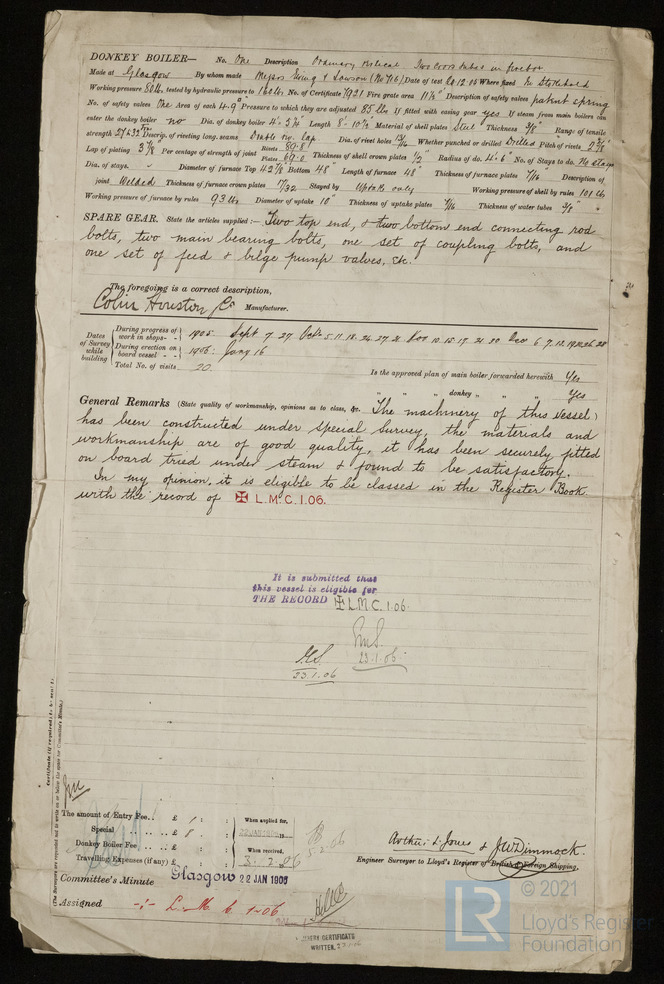 DONKEY BOILER— No. One Description Ordinary Vertical Two cross tubes in firebox
Made at Glasgow By whom made Messrs Ewing & Lawson (No 716) Date of test 20.12.05 Where fixed In Stokehold
Working pressure 80 lb. tested by hydraulic pressure to 160 lbs No. of Certificate 7921 Fire grate area 11½ Description of safety valves patent spring
No. of safety valves One Area of each 4.9" Pressure to which they are adjusted 85 lbs If fitted with easing gear yes If steam from main boilers can
enter the donkey boiler no Dia. of donkey boiler Length Material of shell plates Steel Thickness 3/8" Range of tensile
strength 27 & 32 Descrip. of riveting long. seams Double riv. lap Dia. of rivet holes 13/16" Whether punched or drilled Drilled Pitch of rivets
Lap of plating Per centage of strength of joint Rivets Plates 69.0 Thickness of shell crown plates ½" Radius of do. 4'-6" No. of Stays to do. No stays
Dia. of stays. " Diameter of furnace Top Bottom 48" Length of furnace 48" Thickness of furnace plates 7/16" Description of
joint Welded Thickness of furnace crown plates 17/32 Stayed by Uptake only Working pressure of shell by rules 101 lb
Working pressure of furnace by rules 93 lb Diameter of uptake 10" Thickness of uptake plates 7/16 Thickness of water tubes 3/8"
SPARE GEAR. State the articles supplied:— Two top end, & two bottom end connecting rod
bolts, two main bearing bolts, one set of coupling bolts, and
one set of feed & bilge pump valves, &c.
The foregoing is a correct description,
Colin Houston & Co Manufacturer.
Dates of Survey while building
During progress of work in shops - - 1905: Sept 7. 27. Oct 5. 11. 18. 24. 27. 31 Nov 10. 15. 17. 21. 30 Dec 6. 7. 12. 28
During erection on board vessel - - 1906: Jany 16
Total No. of visits 20.
Is the approved plan of main boiler forwarded herewith Yes
" " " donkey " " " Yes
General Remarks (State quality of workmanship, opinions as to class, &c. The machinery of this vessel,
has been constructed under special survey, the materials and
workmanship are of good quality, it has been securely fitted
on board tried under steam & found to be satisfactory.
In my opinion, it is eligible to be classed in the Register Book.
with the record of ✠ L.M.C. 1.06.
It is submitted that
this vessel is eligible for
THE RECORD ✠ L.M.C. 1.06.
23.1.06
23.1.06
Certificate (if required) to be sent to
(The Surveyors are requested not to write on or below the space for Committee's Minute.)
The amount of Entry Fee. . £ 1 : :
Special . . . . £ 8 . :
Donkey Boiler Fee . . . £ : :
Travelling Expenses (if any) £ : :
When applied for,
22 JAN 1906
When received,
3.2.06
Arthur L. Jones & J.W. Dimmock.
Engineer Surveyor to Lloyd's Register of British & Foreign Shipping.
Committee's Minute Glasgow 22 JAN 1906
Assigned -:- L.M.C. 1.06
CERTIFICATE
WRITTEN.
LR
© 2021
Lloyd's Register
Foundation